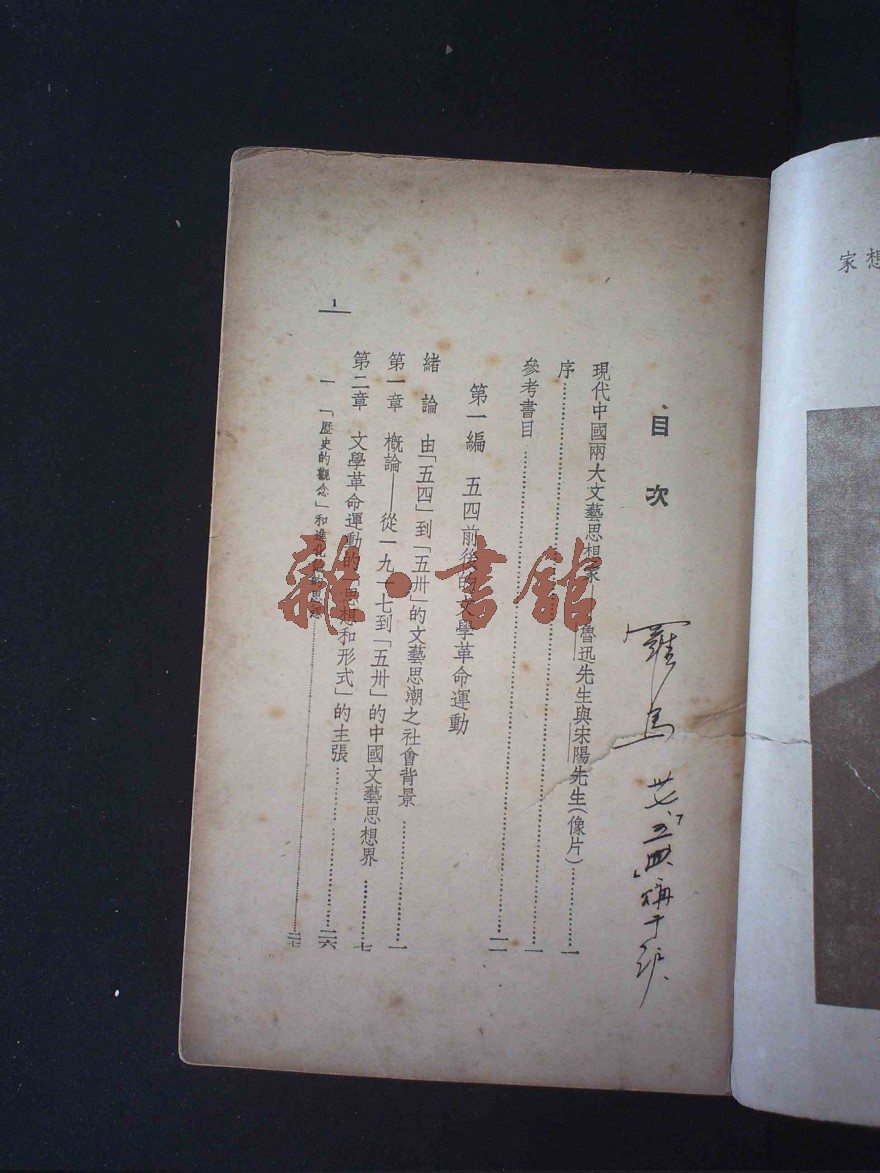 想家
目次
羅馬 廿七、「五四」購于沪
現代中國兩大文藝思想家——魯迅先生與宋陽先生(像片)………一
序………一
參考書目………一一
第一編 五四前後的文學革命運動
緒論 由「五四」到「五卅」的文藝思潮之社會背景………一
第一章 概論——從一九一七到「五卅」的中國文藝思想界………七
第二章 文學革命運動的「思想和形式」的主張………二六
一 「歷史的觀念」和進化的思想………二七
1
雜·書館